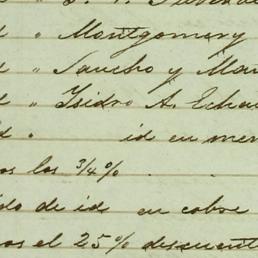 d " Montgomery
d " Sancho y Ma
d " Isidro A. Echa
d " id en men
os los 3/4%
do de id en cobre
os el 25% descuent